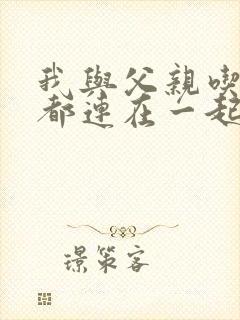 我與父親喫
都連在一起
璟策客